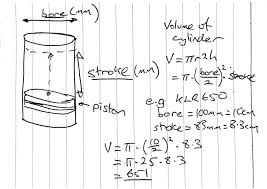 bore (mm)
stroke (mm)
piston
Volume of
cylinder
V = πr2h
= π·(bore/2)²·stroke
e.g KLR650
bore = 100mm = 10cm
stroke = 83mm = 8.3cm
V = π·(10/2)²·8.3
= π·25·8.3
= 651